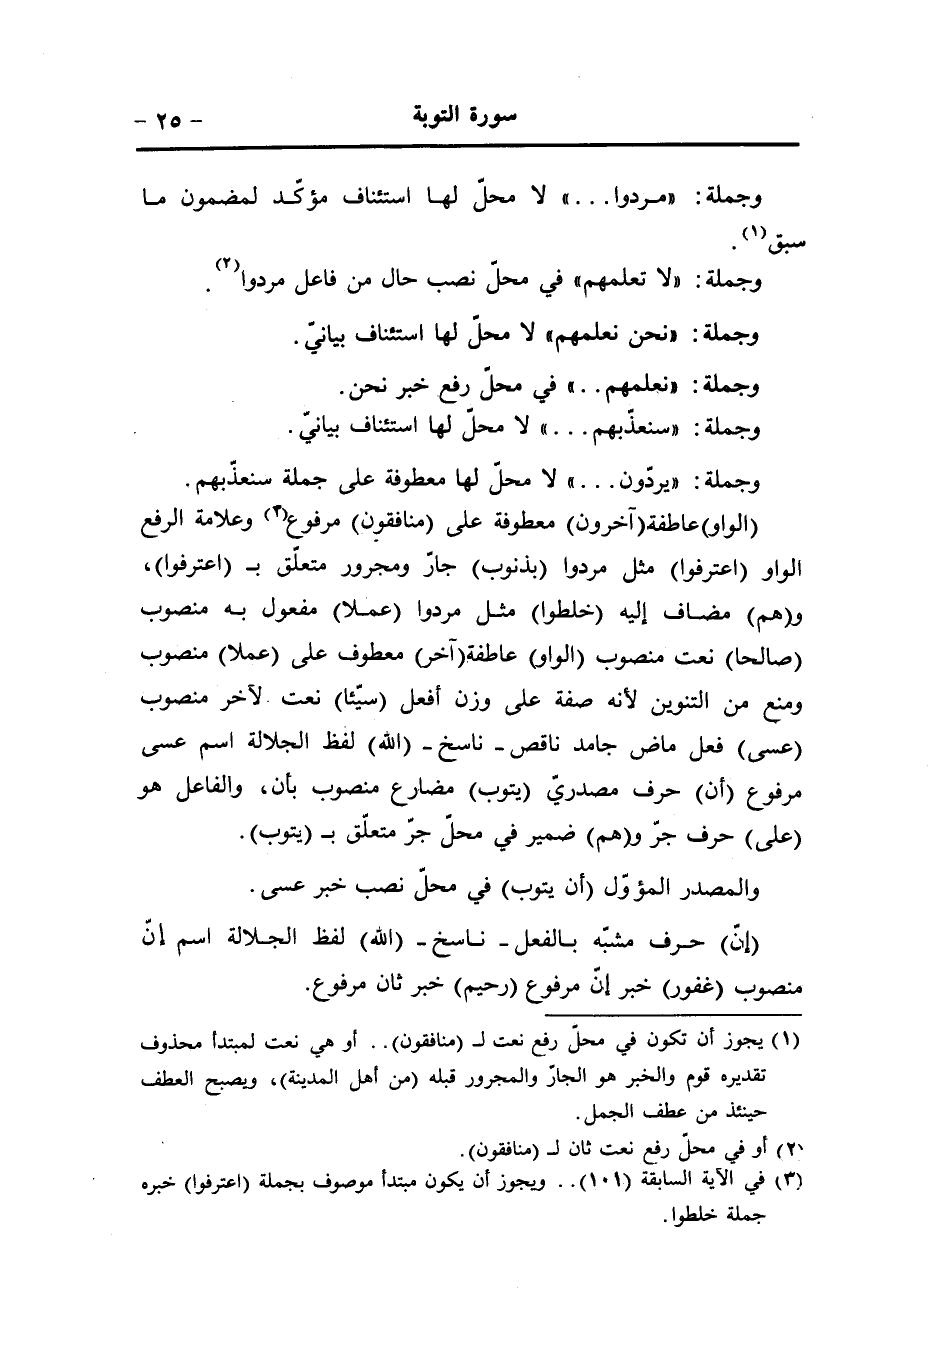 سورة التوبة - ٢٥ -
وجملة: «مردوا...» لا محلّ لها استئناف مؤكّد لمضمون ما
سبق(١).
وجملة: «لا تعلمهم» في محلّ نصب حال من فاعل مردوا(٢).
وجملة: «نحن نعلمهم» لا محلّ لها استئناف بيانيّ.
وجملة: «نعلمهم..» في محلّ رفع خبر نحن.
وجملة: «سنعذّبهم...» لا محلّ لها استئناف بيانيّ.
وجملة: «يردّون...» لا محلّ لها معطوفة على جملة سنعذّبهم.
(الواو)عاطفة(آخرون) معطوفة على (منافقون) مرفوع(٣) وعلامة الرفع
الواو (اعترفوا) مثل مردوا (بذنوب) جارّ ومجرور متعلّق بـ (اعترفوا)،
و(هم) مضاف إليه (خلطوا) مثل مردوا (عملا) مفعول به منصوب
(صالحا) نعت منصوب (الواو) عاطفة(آخر) معطوف على (عملا) منصوب
ومنع من التنوين لأنه صفة على وزن أفعل (سيّئا) نعت لآخر منصوب
(عسى) فعل ماض جامد ناقص ـ ناسخ ـ (الله) لفظ الجلالة اسم عسى
مرفوع (أن) حرف مصدريّ (يتوب) مضارع منصوب بأن، والفاعل هو
(على) حرف جرّ و(هم) ضمير في محلّ جرّ متعلّق بـ (يتوب).
والمصدر المؤوّل (أن يتوب) في محلّ نصب خبر عسى.
(إنّ) حرف مشبّه بالفعل ـ ناسخ ـ (الله) لفظ الجلالة اسم إنّ
منصوب (غفور) خبر إنّ مرفوع (رحيم) خبر ثان مرفوع.
(١) يجوز أن تكون في محلّ رفع نعت لـ (منافقون).. أو هي نعت لمبتدأ محذوف
تقديره قوم والخبر هو الجارّ والمجرور قبله (من أهل المدينة)، ويصبح العطف
حينئذ من عطف الجمل.
(٢) أو في محلّ رفع نعت ثان لـ (منافقون).
(٣) في الآية السابقة (١٠١).. ويجوز أن يكون مبتدأ موصوف بجملة (اعترفوا) خبره
جملة خلطوا.